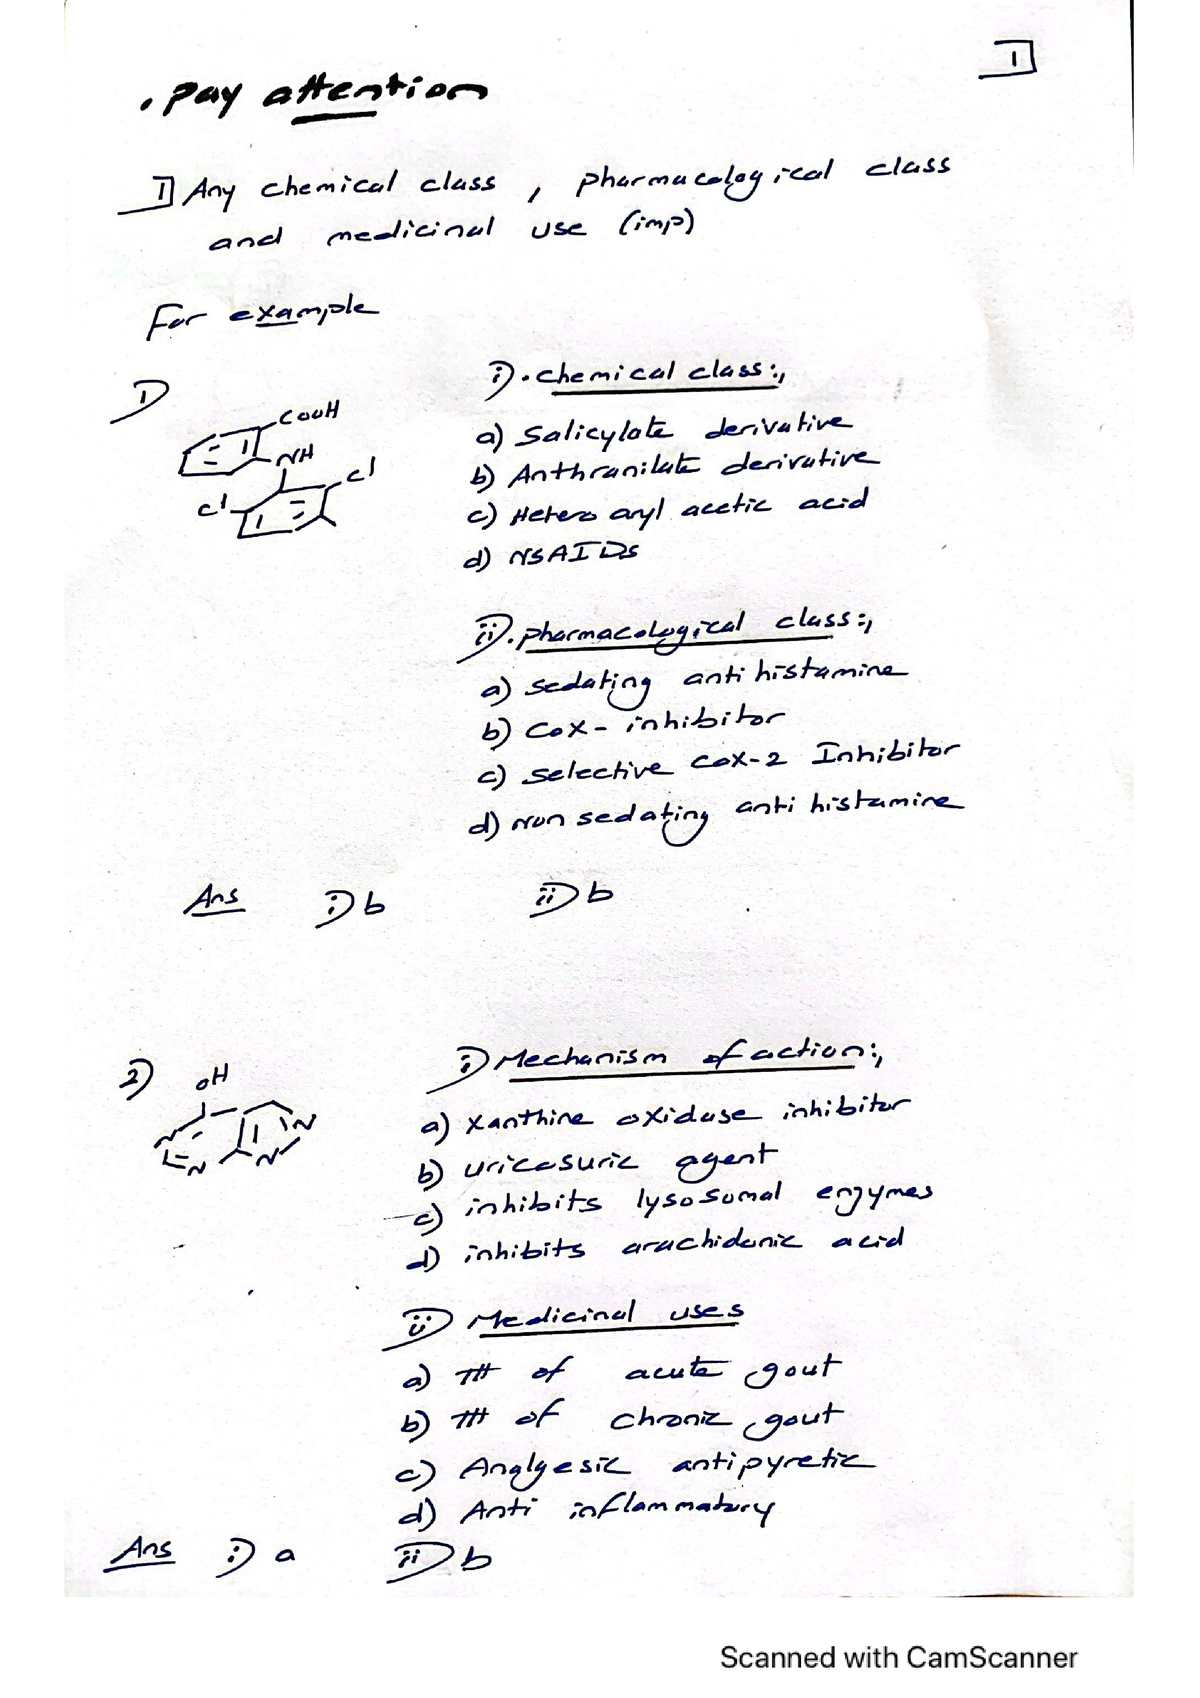 1
. pay attention
1] Any chemical class , pharmacological class
and medicinal use (imp)
For example
1)
COOH
NH
cl
cl
i) . chemical class :,
a) Salicylate derivative
b) Anthranilate derivative
c) Hetero aryl acetic acid
d) NSAIDs
ii) . pharmacological class :,
a) sedating anti histamine
b) Cox - inhibitor
c) selective cox-2 Inhibitor
d) Non sedating anti histamine
Ans i) b ii) b
2)
OH
N
N
N
N
i) Mechanism of action :,
a) Xanthine oxidase inhibitor
b) uricosuric agent
c) inhibits lysosomal enzymes
d) inhibits arachidonic acid
ii) Medicinal uses
a) ttt of acute gout
b) ttt of chronic gout
c) Anglyesic antipyretic
d) Anti inflammatory
Ans i) a ii) b
Scanned with CamScanner